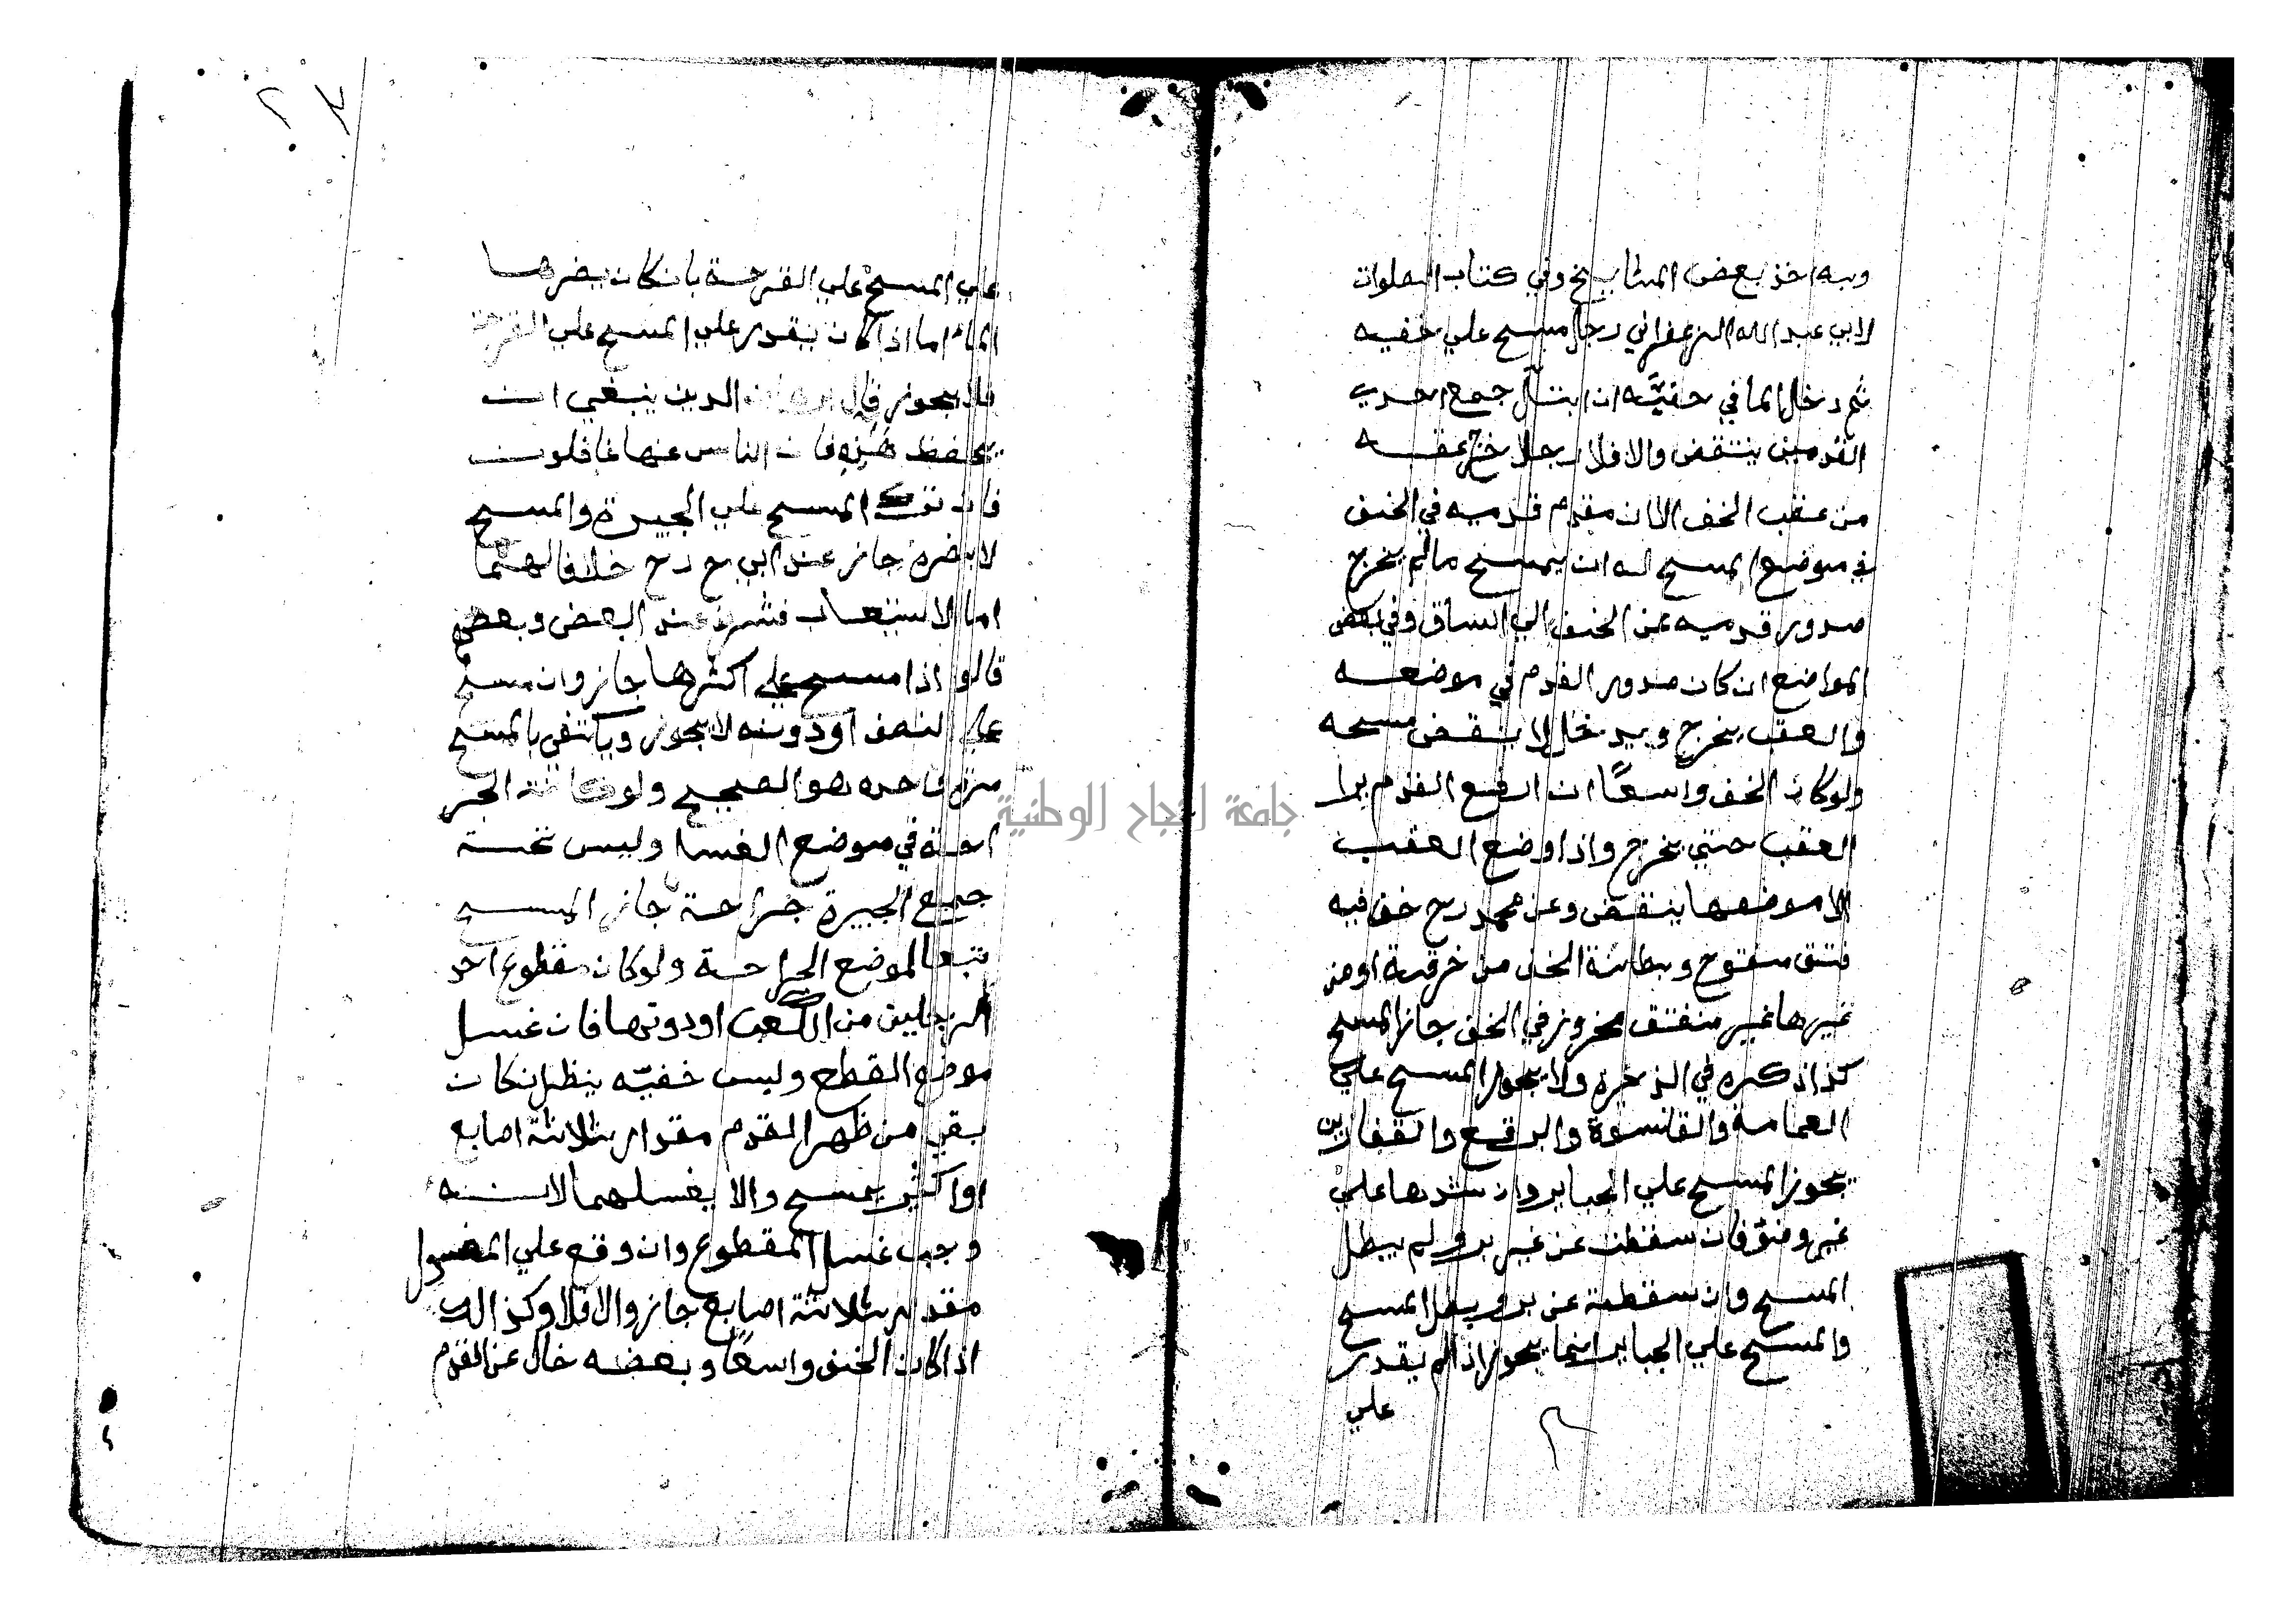 وبه اخذ بعض المشايخ وفي كتاب الصلوات
لابي عبد الله الزعفراني رجل مسح علي خفيه
ثم دخل الما في خفيه ان ابتل جميع احدي
القدمين ينتقض والا فلا رجلا خرج عقبه
من عقب الخف الا ان مقدم قدميه في الخف
في موضع المسح له ان يمسح ما لم يخرج
صدور قدميه عن الخف الي الساق وفي بعض
المواضع ان كان صدور القدم في موضعه
والعقب يخرج ويدخل لا ينقض مسحه
ولو كان الخف واسعًا ان ارفع القدم يرا
العقب حتي يخرج واذا وضع العقب
الا موضعها ينتقض وعن محمد رح خف فيه
فتق مفتوح وبطانة الخف من خرقة او من
غيرها غير منفتق مخروز في الخف جاز المسح
كذا ذكره في الذخرة ولا يجوز المسح علي
العمامة والقلنسوة والبرقع والقفازين
يجوز المسح علي الجباير وان شدها علي
غير وضؤ فان سقطت عن غير برو لم يبطل
المسح وان سقطة عن برو بطل المسح
والمسح علي الجباير انما يجوز اذا لم يقدر
علي
٢٣
علي المسح علي القرحة بان كان يضرها
الماء اما اذا كان يقدر علي المسح علي القرحة
فلا يجوز قال الدين ينبغي ان
يحفظ هذه فان الناس عنها غافلون
فان ترك المسح علي الجبيرة والمسح
لا يضره جاز عند ابي ح رح خلافا لهما
اما الاستيعاب فشرط عند البعض وبعض
قالو اذا مسح علي اكثرها جاز وان مسح
علي النصف او دونه لا يجوز ويكتفي بالمسح
مرة واحده هو الصحيح ولو كانت الجر
احة في موضع الغسل وليس تحته
جميع الجبيرة جراحة جاز المسح
تبعا لموضع الجراحة ولو كان مقطوع احد
الرجلين من الكعب او دونها فان غسل
موضع القطع وليس خفيه ينظر ان كان
بقي من ظهر القدم مقدار ثلاثة اصابع
او اكثر يمسح والا يغسلهما لانه
وجب غسل المقطوع وان وقع علي المغسول
مقدار ثلاثة اصابع جاز والا فلا وكذالك
اذا كان الخف واسعًا وبعضه خال عن القدم
جامعة النجاح الوطنية